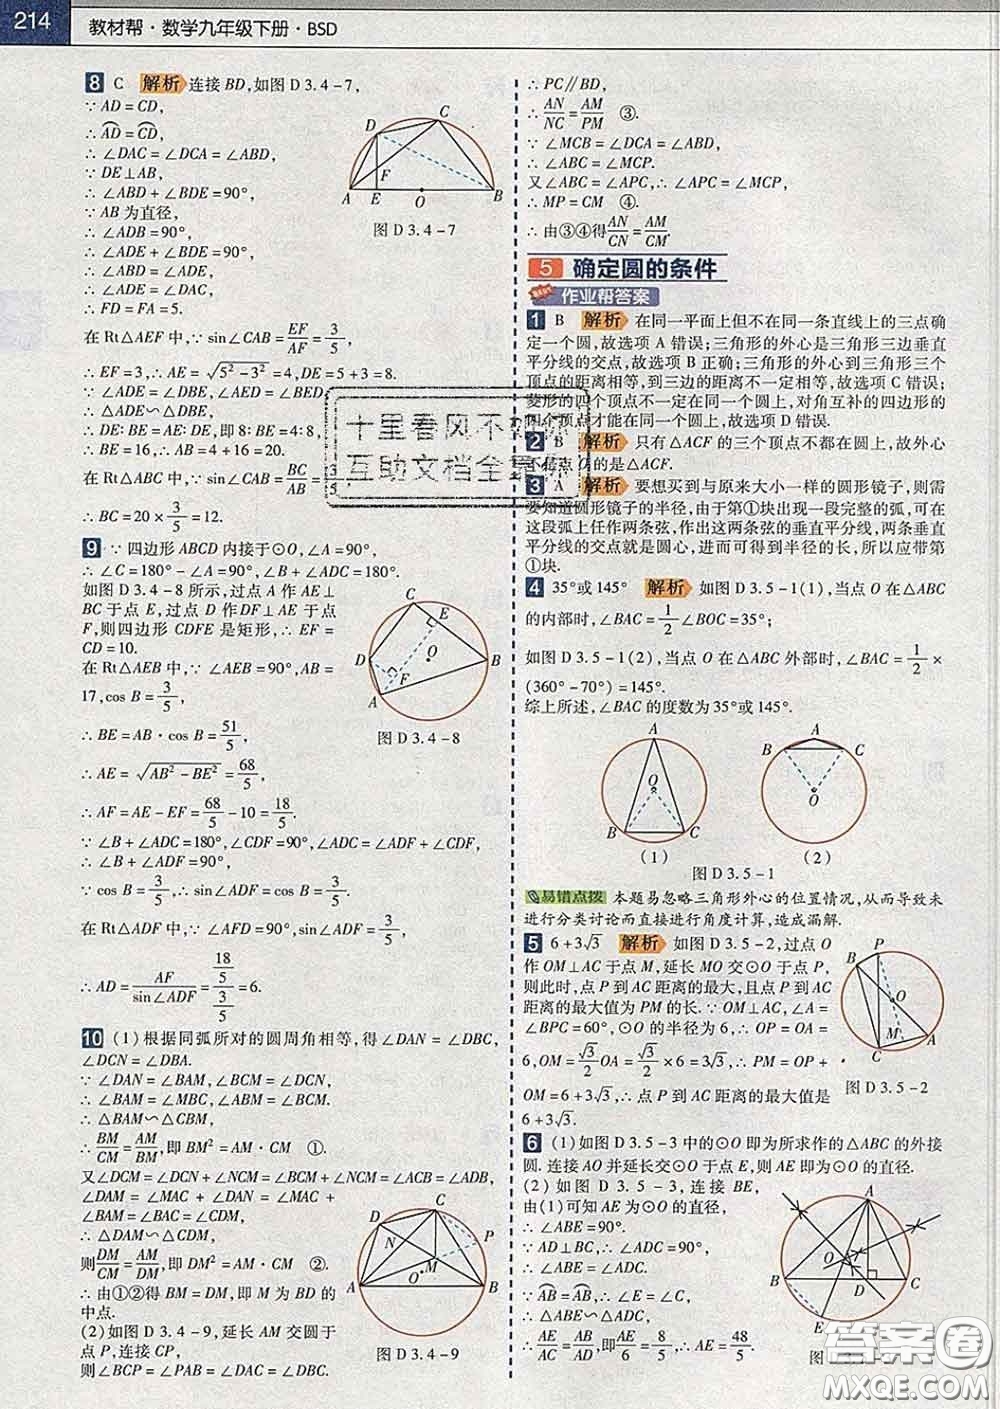 214 教材帮·数学九年级下册·BSD
8 C 解析 连接 BD,如图 D 3.4-7,
∵ AD=CD,
∴ ⌒AD=⌒CD,
∴ ∠DAC=∠DCA=∠ABD,
∵ DE⊥AB,
∴ ∠ABD+∠BDE=90°,
∵ AB 为直径,
∴ ∠ADB=90°,
∴ ∠ADE+∠BDE=90°,
∴ ∠ABD=∠ADE,
∴ ∠ADE=∠DAC,
∴ FD=FA=5.
在 Rt△AEF 中,∵ sin∠CAB=EF/AF=3/5,
∴ EF=3,∴ AE=√(5²-3²)=4,DE=5+3=8.
∵ ∠ADE=∠ABD,∠AED=∠BED
∴ △ADE∽△DBE,
∴ DE:BE=AE:DE,即 8:BE=4:8,
∴ BE=16,∴ AB=4+16=20.
在 Rt△ABC 中,∵ sin∠CAB=BC/AB=3/5
∴ BC=20×3/5=12.
D C F A E O B
图 D 3.4-7
9 ∵ 四边形 ABCD 内接于⊙O,∠A=90°,
∴ ∠C=180°-∠A=90°,∠B+∠ADC=180°.
如图 D 3.4-8 所示,过点 A 作 AE⊥
BC 于点 E,过点 D 作 DF⊥AE 于点
F,则四边形 CDFE 是矩形,∴ EF=
CD=10.
在 Rt△AEB 中,∵ ∠AEB=90°,AB=
17,cos B=3/5,
∴ BE=AB·cos B=51/5,
∴ AE=√(AB²-BE²)=68/5,
∴ AF=AE-EF=68/5-10=18/5.
∵ ∠B+∠ADC=180°,∠CDF=90°,∠ADC=∠ADF+∠CDF,
∴ ∠B+∠ADF=90°,
∵ cos B=3/5,∴ sin∠ADF=cos B=3/5.
在 Rt△ADF 中,∵ ∠AFD=90°,sin∠ADF=3/5,
∴ AD=AF/sin∠ADF=(18/5)/(3/5)=6.
C E D O B F A
图 D 3.4-8
10 (1)根据同弧所对的圆周角相等,得∠DAN=∠DBC,
∠DCN=∠DBA.
∵ ∠DAN=∠BAM,∠BCM=∠DCN,
∴ ∠BAM=∠MBC,∠ABM=∠BCM,
∴ △BAM∽△CBM,
∴ BM/CM=AM/BM,即 BM²=AM·CM ①.
又∠DCM=∠DCN+∠NCM=∠BCM+∠NCM=∠ACB=∠ADB,
∠DAM=∠MAC+∠DAN=∠MAC+
∠BAM=∠BAC=∠CDM,
∴ △DAM∽△CDM,
则DM/CM=AM/DM,即 DM²=AM·CM ②.
∴ 由①②得 BM=DM,即 M 为 BD 的
中点.
(2)如图 D 3.4-9,延长 AM 交圆于
点 P,连接 CP,
则∠BCP=∠PAB=∠DAC=∠DBC.
C D P N M O A B
图 D 3.4-9
∴ PC∥BD,
∴ AN/NC=AM/PM ③.
∵ ∠MCB=∠DCA=∠ABD,∠DBC=∠PCB,
∴ ∠ABC=∠MCP.
又∠ABC=∠APC,∴ ∠APC=∠MCP,
∴ MP=CM ④.
∴ 由③④得AN/CN=AM/CM.
5 确定圆的条件
作业帮答案
1 B 解析 在同一平面上但不在同一条直线上的三点确
定一个圆,故选项 A 错误;三角形的外心是三角形三边垂直
平分线的交点,故选项 B 正确;三角形的外心到三角形三个
顶点的距离相等,到三边的距离不一定相等,故选项 C 错误;
菱形的四个顶点不一定在同一个圆上,对角互补的四边形的
四个顶点才能在同一个圆上,故选项 D 错误.
2 B 解析 只有△ACF 的三个顶点不都在圆上,故外心
不是点 O 的是△ACF.
3 A 解析 要想买到与原来大小一样的圆形镜子,则需
要知道圆形镜子的半径,由于第①块出现一段完整的弧,可在
这段弧上任作两条弦,作出这两条弦的垂直平分线,两条垂直
平分线的交点就是圆心,进而可得到半径的长,所以应带第
①块.
4 35°或 145° 解析 如图 D 3.5-1(1),当点 O 在△ABC
的内部时,∠BAC=1/2∠BOC=35°;
如图 D 3.5-1(2),当点 O 在△ABC 外部时,∠BAC=1/2×
(360°-70°)=145°.
综上所述,∠BAC 的度数为 35°或 145°.
A O B C
(1)
A B C O
(2)
图 D 3.5-1
易错点拨 本题易忽略三角形外心的位置情况,从而导致未
进行分类讨论而直接进行角度计算,造成漏解.
5 6+3√3 解析 如图 D 3.5-2,过点 O
作 OM⊥AC 于点 M,延长 MO 交⊙O 于点 P,
则此时,点 P 到 AC 距离的最大,且点 P 到 AC
距离的最大值为 PM 的长.∵ OM⊥AC,∠A=
∠BPC=60°,⊙O 的半径为 6,∴ OP=OA=
6,OM=√3/2OA=√3/2×6=3√3,∴ PM=OP+
OM=6+3√3,∴ 点 P 到 AC 距离的最大值是
6+3√3.
P B O M C A
图 D 3.5-2
6 (1)如图 D 3.5-3 中的⊙O 即为所求作的△ABC 的外接
圆.连接 AO 并延长交⊙O 于点 E,则 AE 即为⊙O 的直径.
(2)如图 D 3.5-3,连接 BE,
由(1)可知 AE 为⊙O 的直径,
∴ ∠ABE=90°.
∵ AD⊥BC,∴ ∠ADC=90°,
∴ ∠ABE=∠ADC.
∵ ⌒AB=⌒AB,∴ ∠E=∠C,
∴ △ABE∽△ADC,
∴ AE/AC=AB/AD,即AE/6=8/5,∴ AE=48/5.
A O B D C E
十里春风不如你
互助文档全靠你
答案圈
MXQE.COM